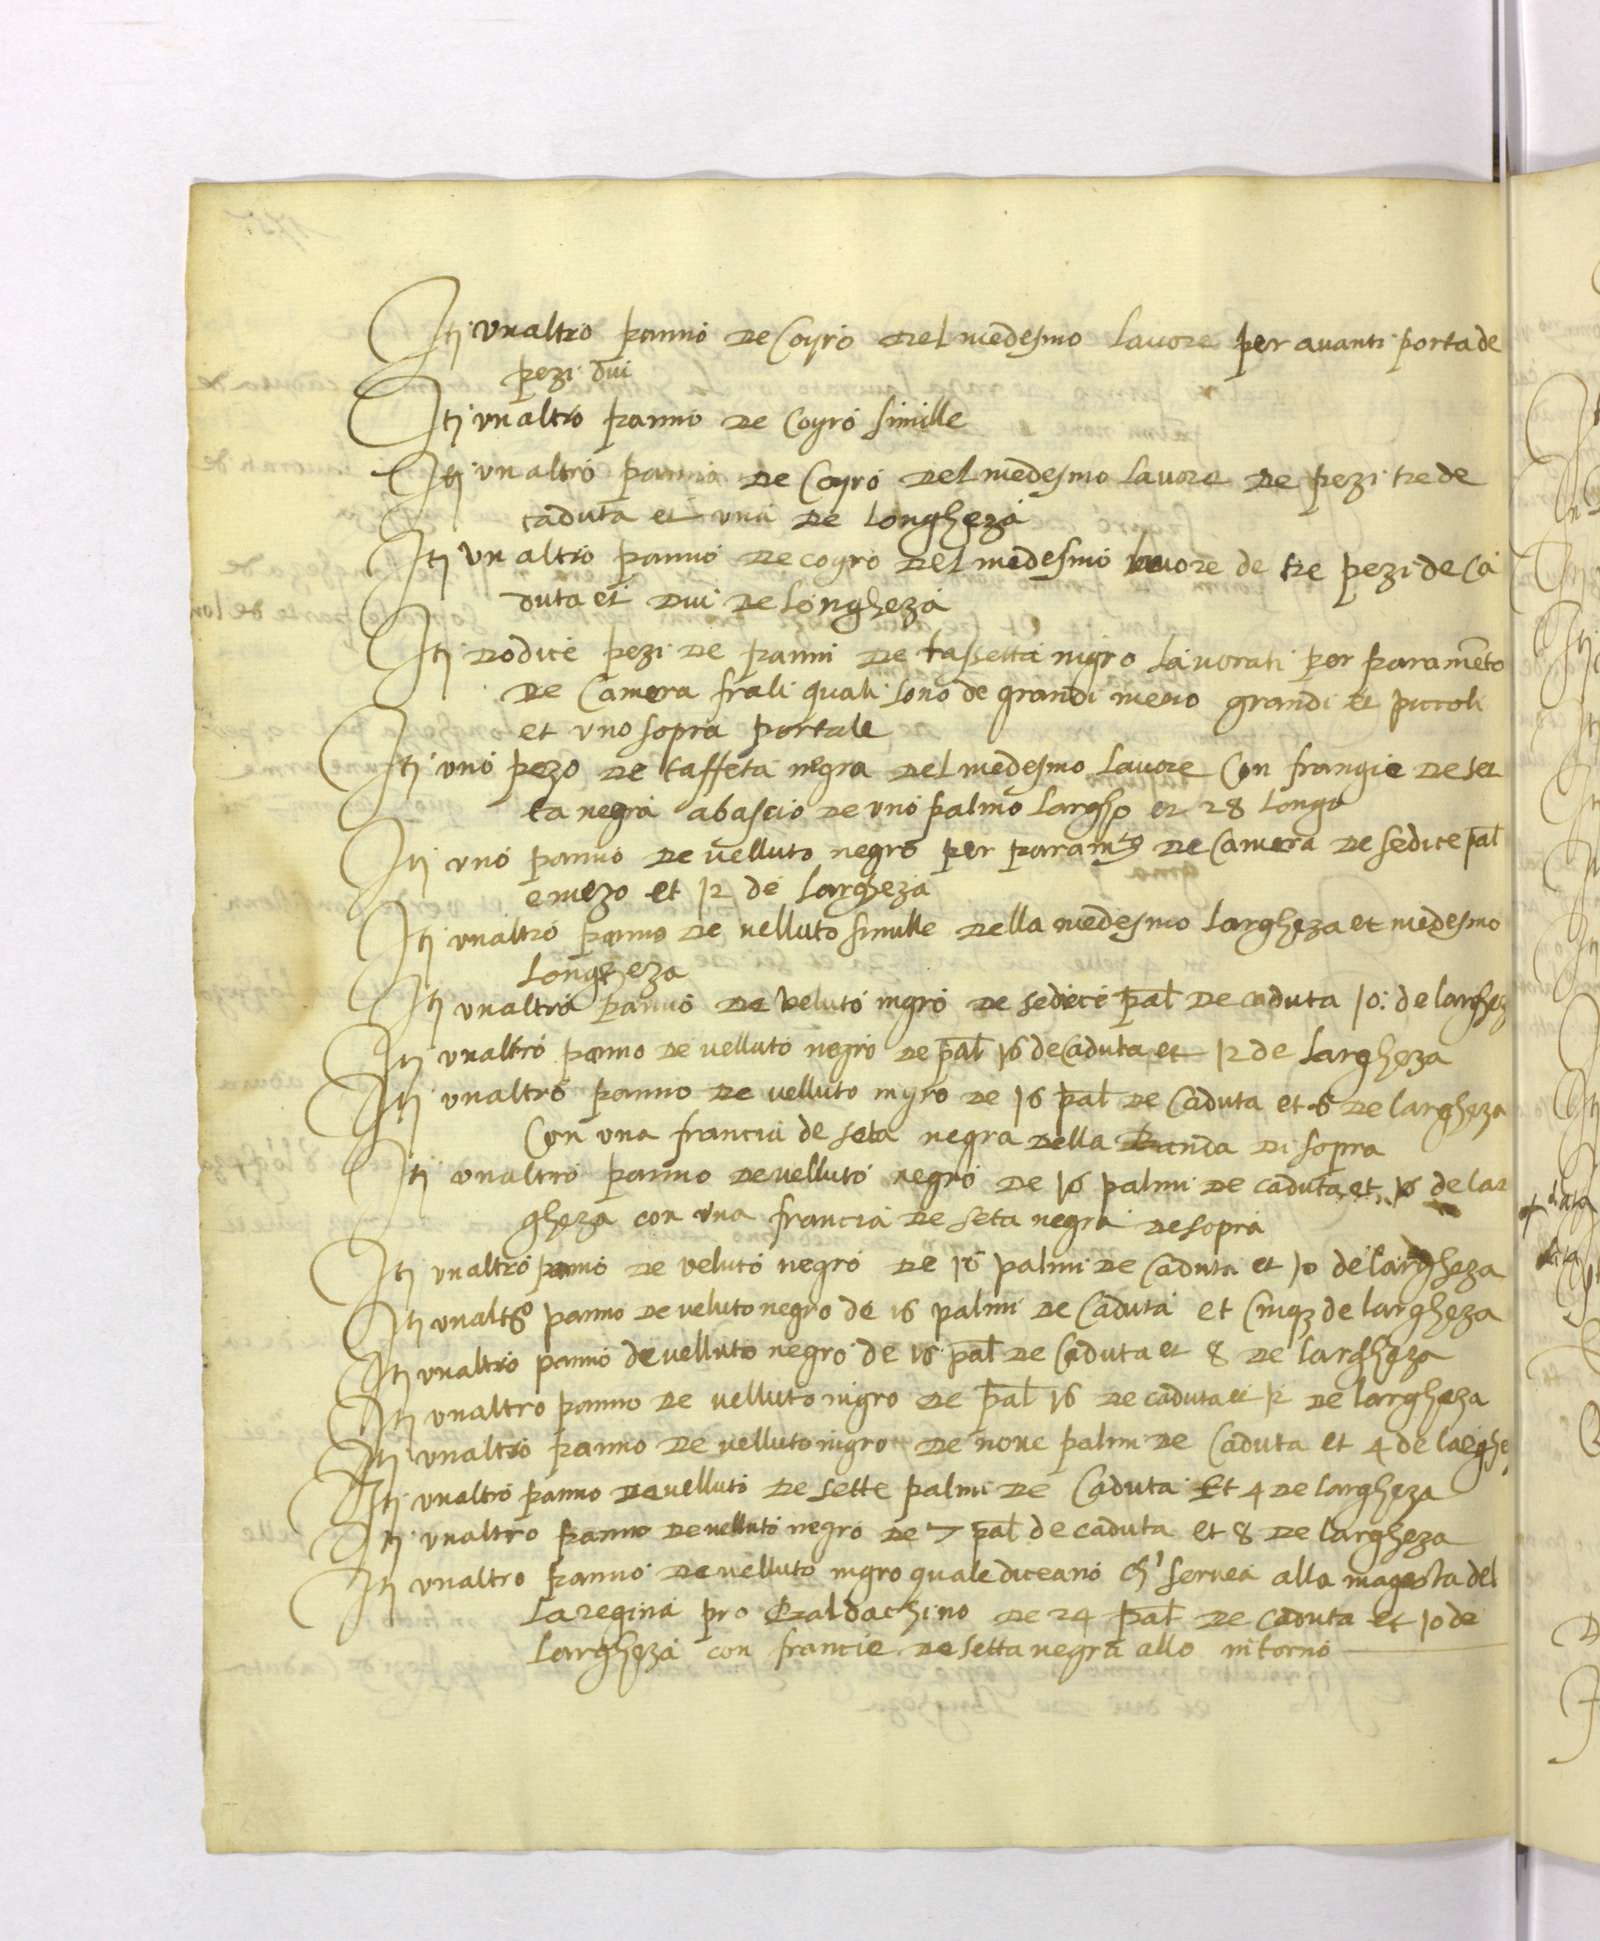 Itj vnaltro panno de Coyro del medesmo lauore per auanti porta de
pezi dui
Itj vnaltro panno de Coyro simille
Itj vnaltro panno de Coyro del medesmo lauore de pezi tre de
caduta et una de longheza
Itj vn altro panno de coyro del medesmo lauore de tre pezi de Ca
duta et dui de longheza
Itj dodice pezi de panni de taffetta nigro lauorati per paramẽto
de Camera frali quali sono de grandi mezo grandi et piccoli
et uno sopra portale
Itj uno pezo de taffeta negra del medesmo lauore Con frangie de set
ta negra abascio de uno palmo largho et 28 longo
Itj uno panno de velluto negro per paramto de Camera de sedice pal
e mezo et 12 de largheza
Itj vnaltro panno de velluto simille della medesmo largheza et medesmo
longheza
Itj vnaltro panno de veluto nigro de sedece pal de caduta 10: de larghez
Itj vnaltro panno de velluto negro de pal 16 de Caduta et 12 de largheza
Itj vnaltro panno de velluto nigro de 16 pal de Caduta et 6 de largheza
Con una francia de seta negra della Banda di sopra
Itj vnaltro panno de velluto negro de 16 palmi de caduta et 16 de lar
gheza con una francia de seta negra de sopra
Itj vnaltro panno de veluto negro de 16 palmi de Caduta et 10 de largheza
Itj vnaltro panno de veluto negro de 16 palmi de Caduta et Cinq3 de largheza
Itj vnaltro panno de velluto negro de 16 pal de Caduta et 8 de largheza
Itj vnaltro panno de velluto nigro de pal 16 de caduta et 12 de largheza
Itj vnaltro panno de velluto nigro de noue palmi de Caduta et 4 de larghe
Itj vnaltro panno de velluto de sette palmi de Caduta Et 4 de largheza
Itj vnaltro panno de velluto negro de 7 pal de caduta et 8 de largheza
Itj vnaltro panno de velluto nigro quale diceano ch' seruea alla magesta del
la regina pro Baldachino de 24 pal de caduta et 10 de
largheza con francie de setta negra allo intorno